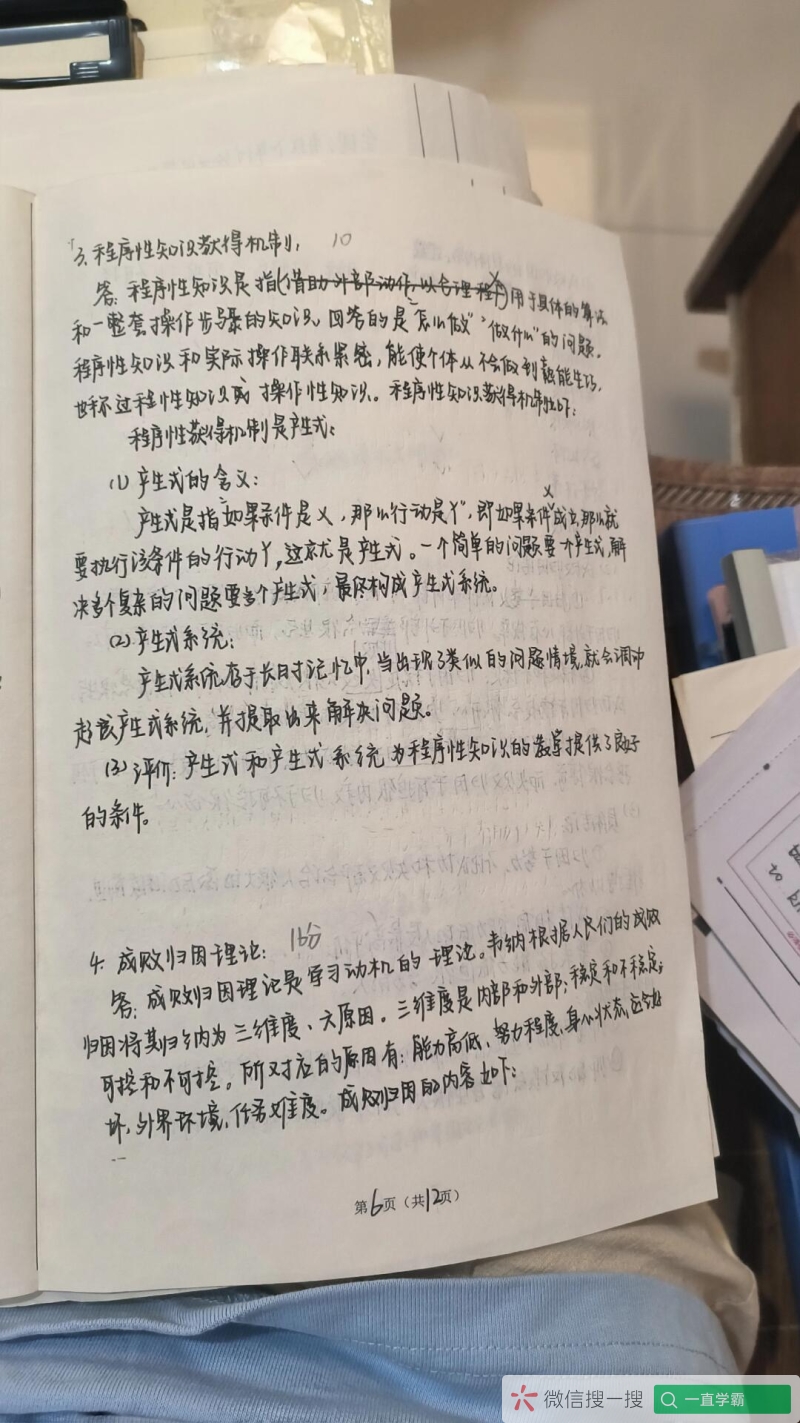 3、程序性知识获得机制, 10
答:程序性知识是指(借助外部动作,以合理程序)用于具体的算法
和一整套操作步骤的知识。回答的是“怎么做”“做什么”的问题,
程序性知识和实际操作联系紧密,能使个体从不会做到熟能生巧,
也称过程性知识或操作性知识。程序性知识获得机制如下:
程序性获得机制是产生式:
(1) 产生式的含义:
产生式是指“如果条件是X,那么行动是Y”,即如果条件X成立,那么就
要执行该条件的行动Y,这就是产生式。一个简单的问题要一个产生式,解
决多个复杂的问题要多个产生式,最终构成产生式系统。
(2) 产生式系统:
产生式系统存于长时记忆中,当出现了类似的问题情境,就会调动
起该产生式系统,并提取出来解决问题。
(3) 评价:产生式和产生式系统为程序性知识的教学提供了良好
的条件。
4. 成败归因理论: 16分
答:成败归因理论是学习动机的理论。韦纳根据人民们的成败
归因将其归纳为三维度、六原因。三维度是内部和外部;稳定和不稳定;
可控和不可控。所对应的原因有:能力高低、努力程度、身心状态、运气好
坏,外界环境,任务难度。成败归因的内容如下:
第6页(共12页)
微信搜一搜
一直学霸